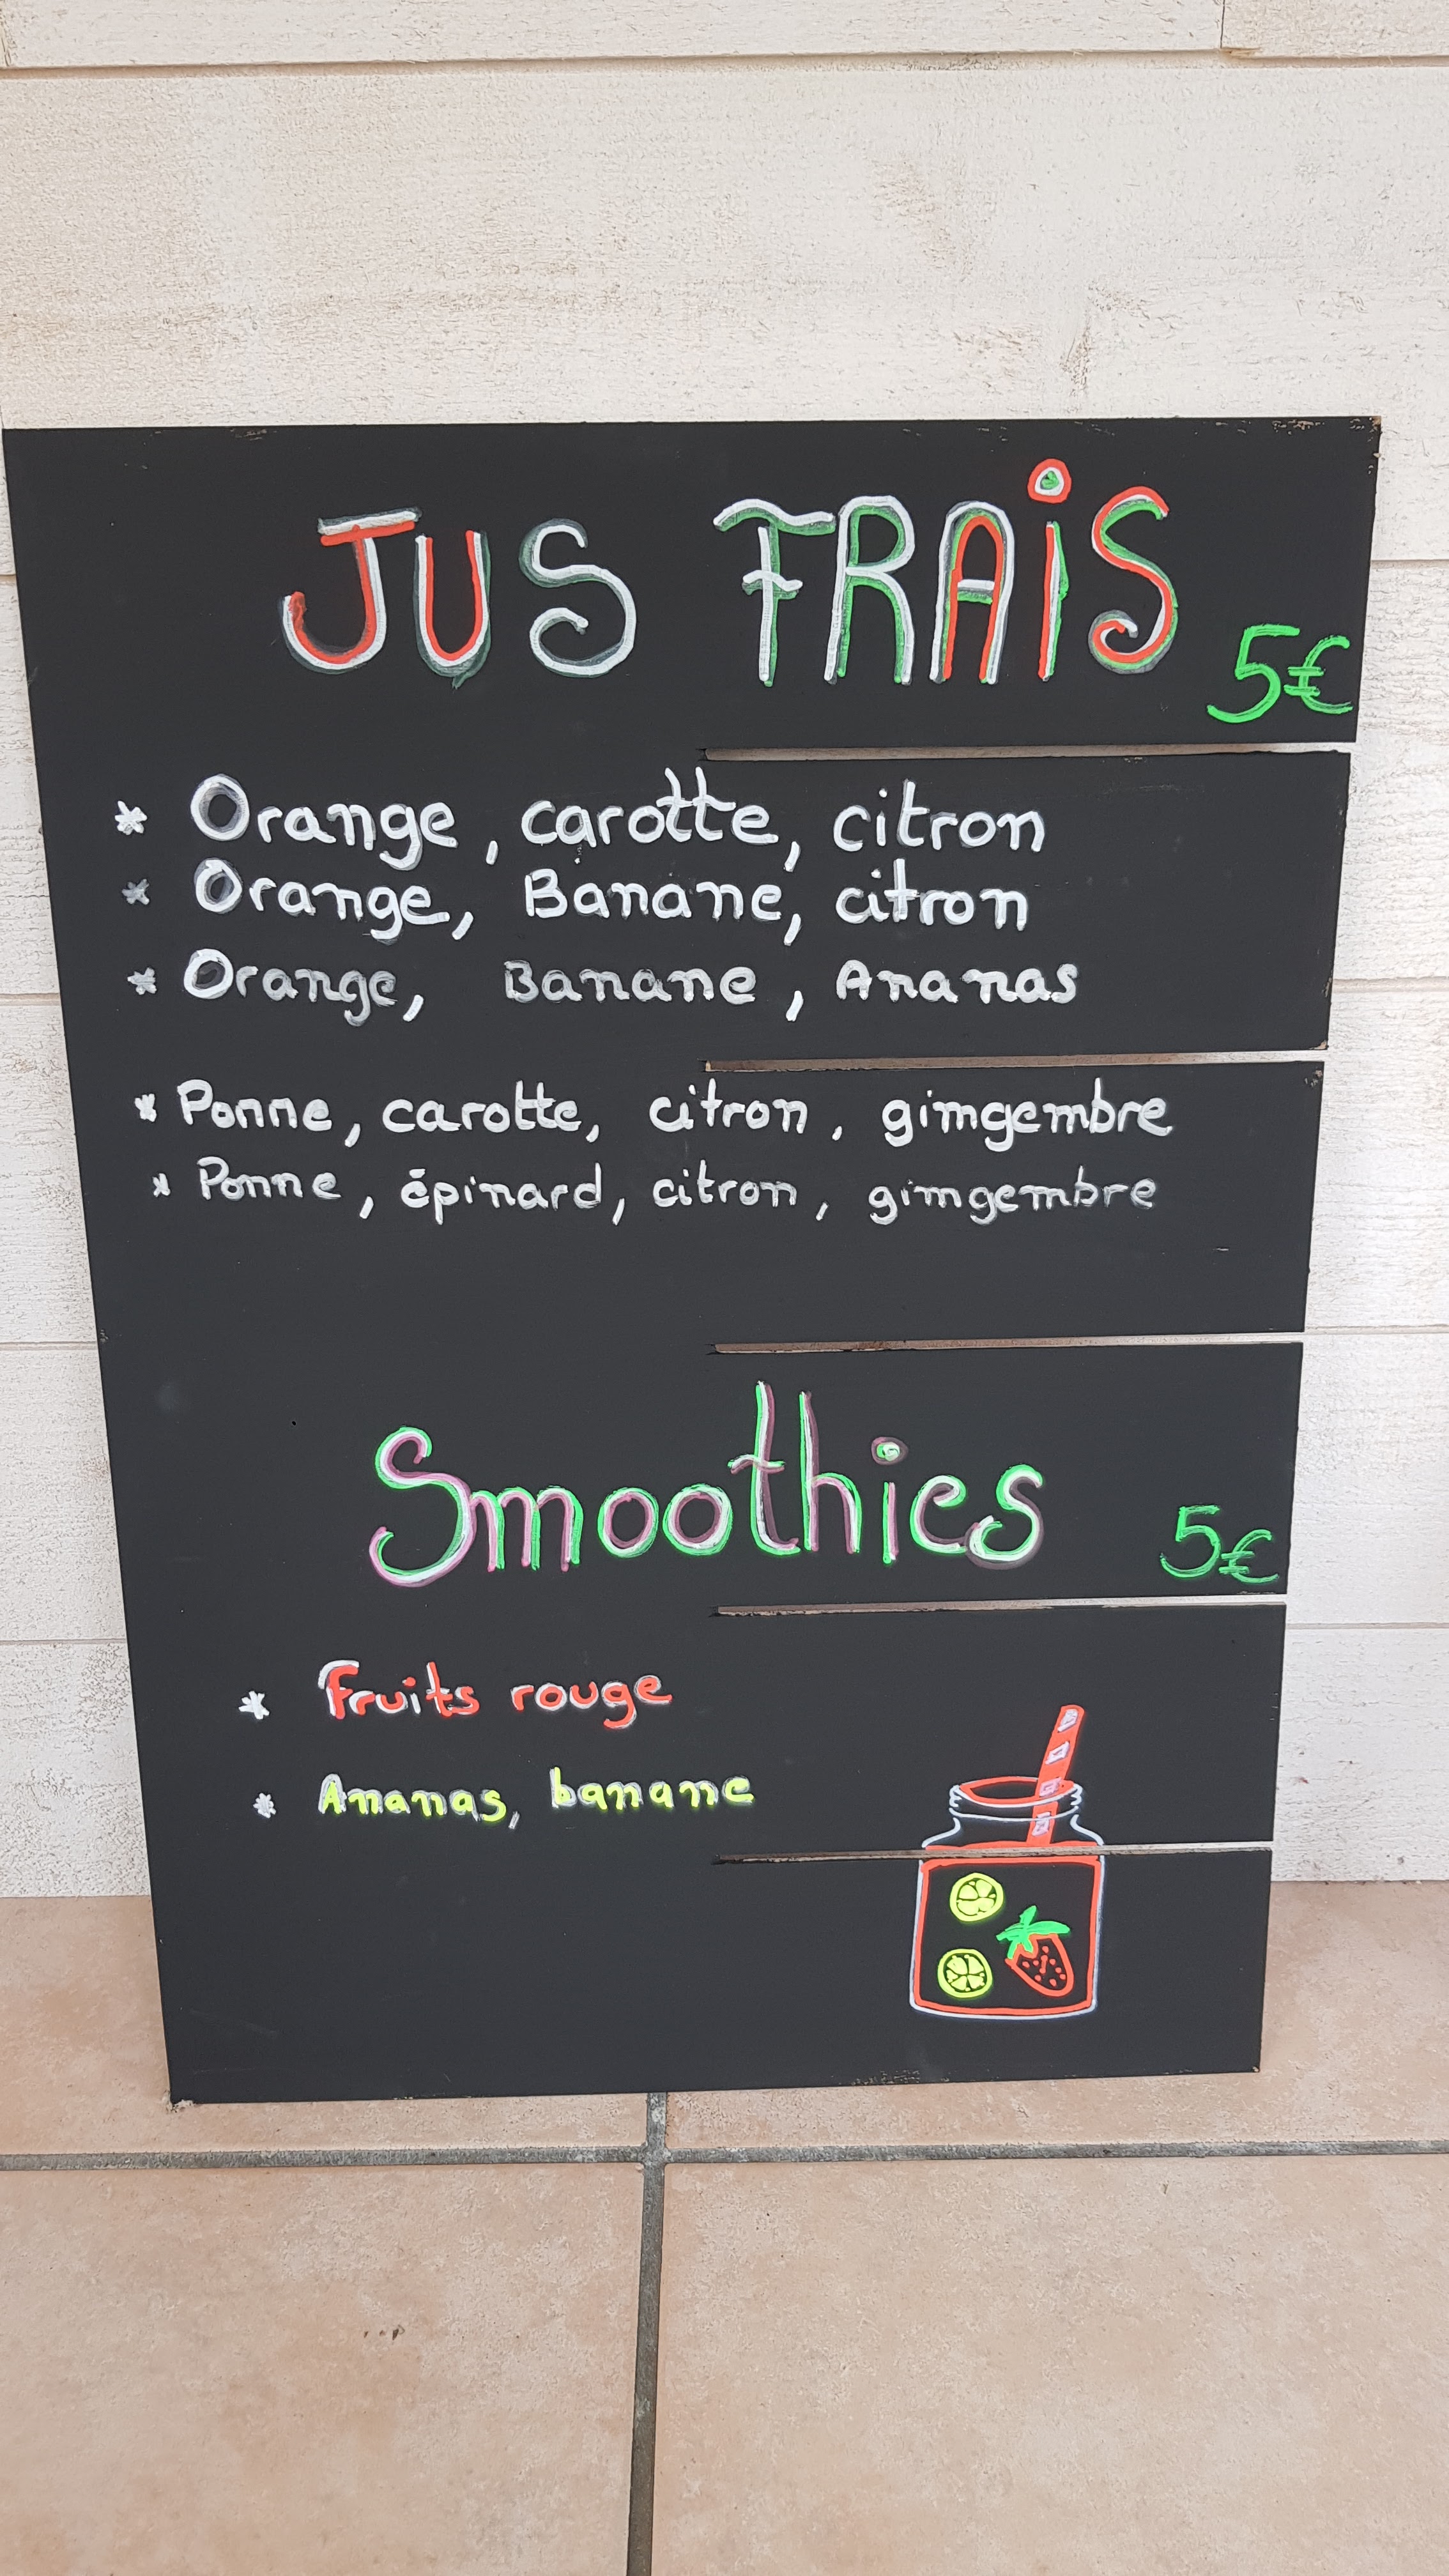 JUS FRAiS
5€
* Orange, carotte, citron
* Orange, Banane, citron
* Orange, Banane, Ananas
* Ponne, carotte, citron, gimgembre
* Ponne, épinard, citron, gimgembre
Smoothies
5€
* Fruits rouge
* Ananas, banane